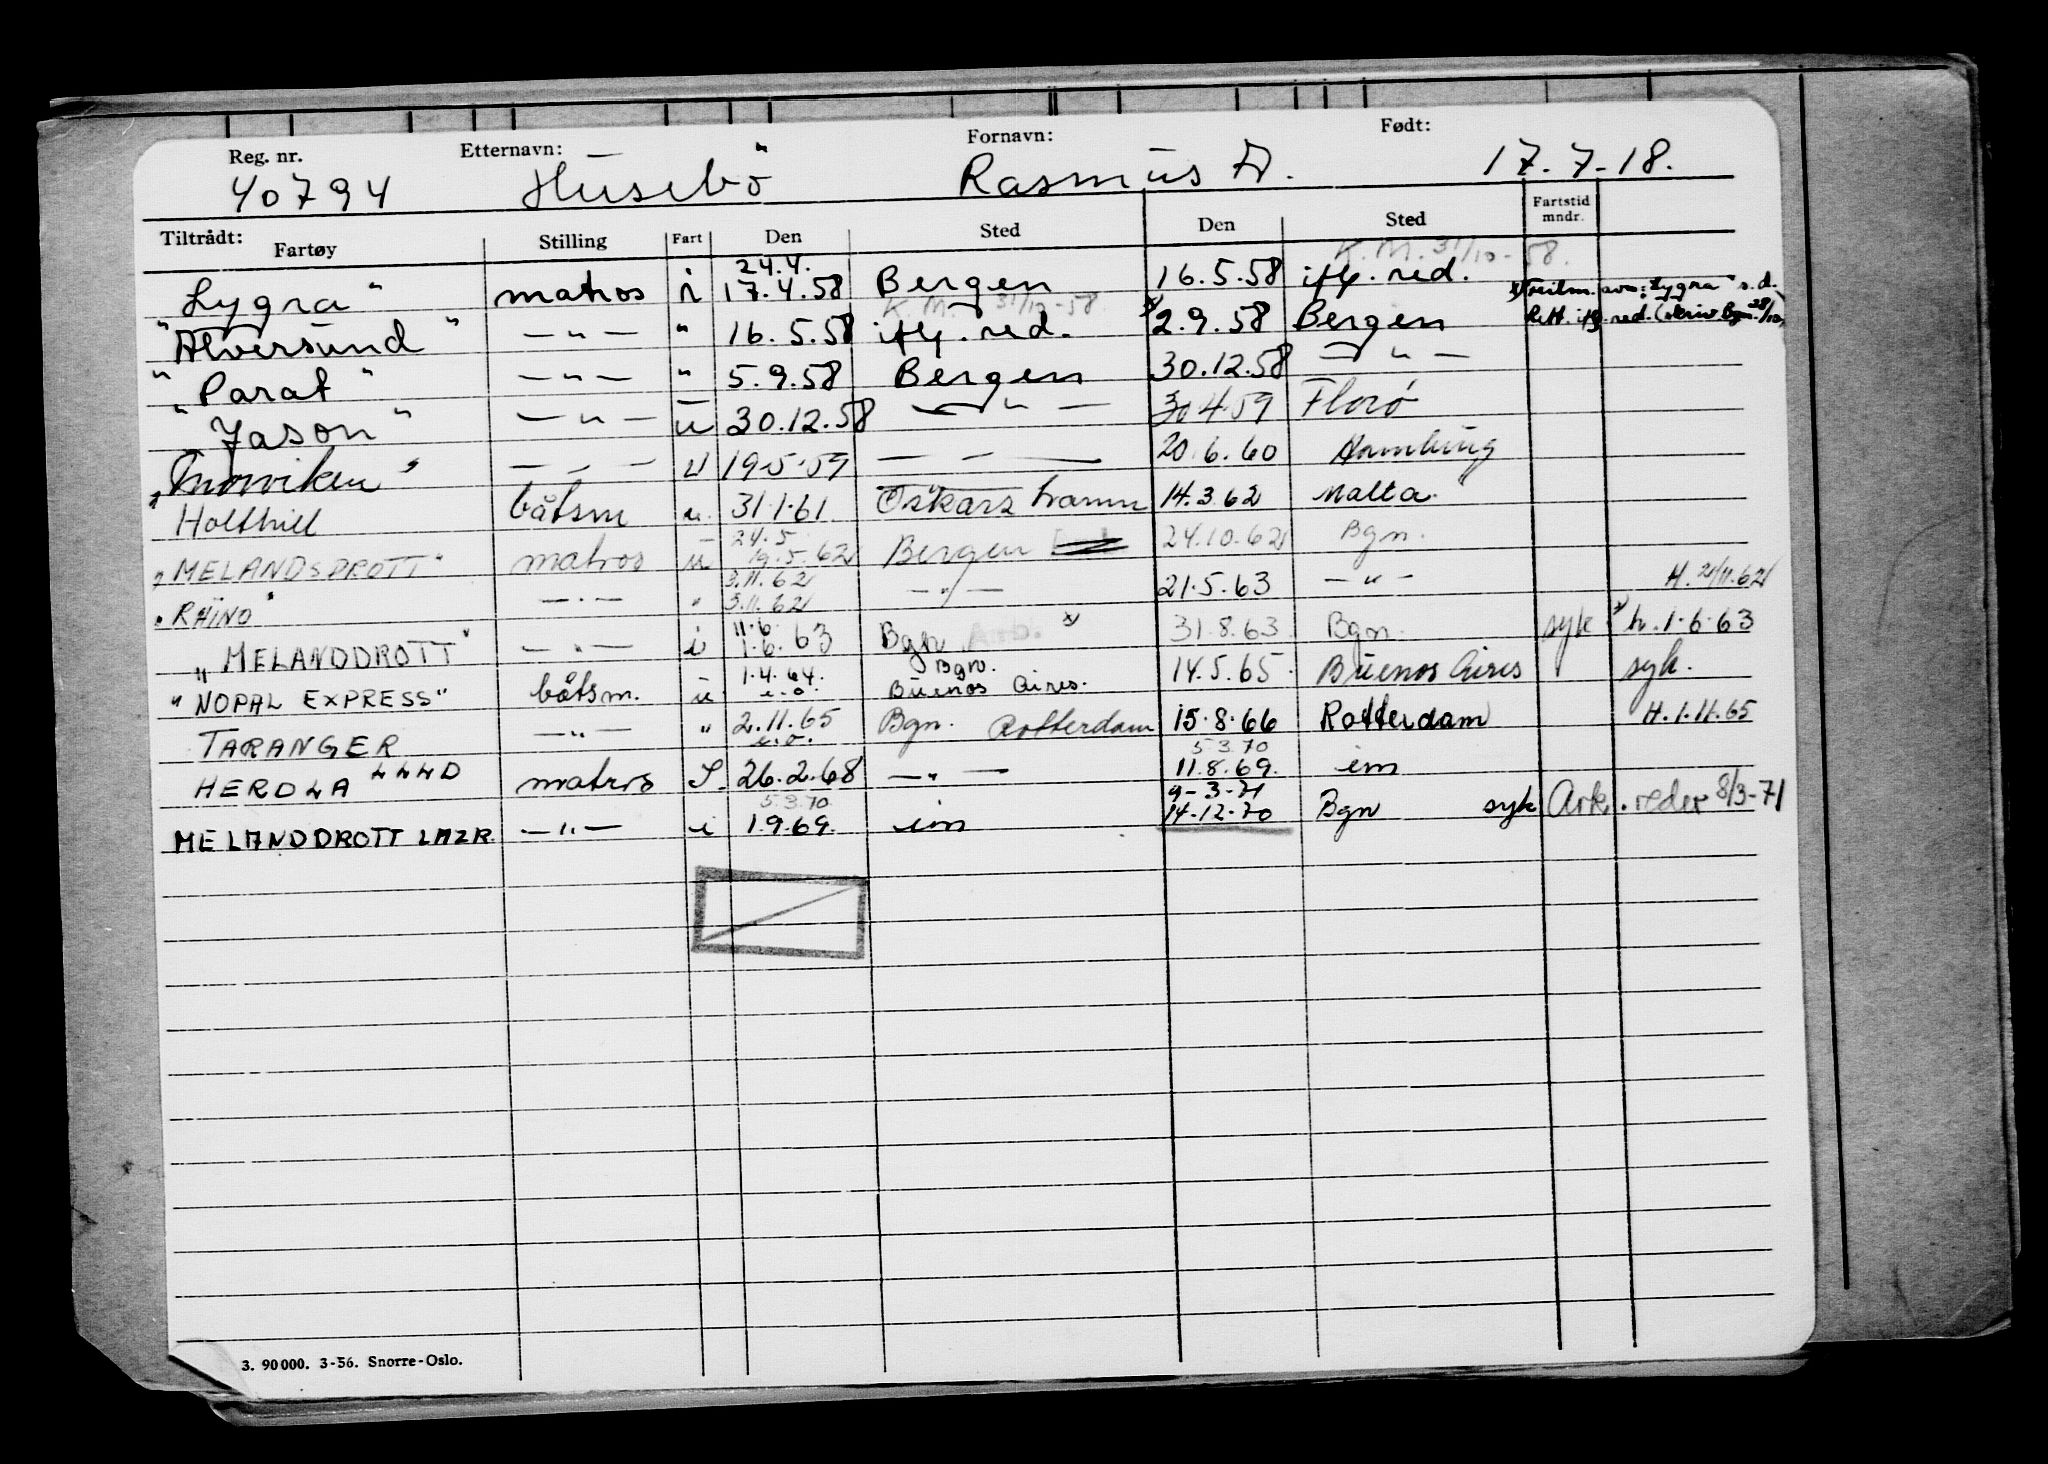 Reg. nr. Etternavn: Fornavn: Født:
40794 Husebö Rasmus A. 17.7.18.
Tiltrådt: Fartøy Stilling Fart Den Sted Den Sted Fartstid mndr.
K.M. 31/10-58.
24.4.
"Lygra" matros i 17.4.58 Bergen 16.5.58 iflg. red.
K.M. 31/12-58
"Alversund" —"— " 16.5.58 iflg. red. x 2.9.58 Bergen
"Parat" —"— " 5.9.58 Bergen 30.12.58 —"—
"Jason" —"— u 30.12.58 —"— 30.4.59 Florö
—"— u 19.5.59 —"— 20.6.60 Hamburg
Holthill båtsm u. 31.1.61 Oskarshamn 14.3.62 Malta.
24.5
"MELANDSDROTT" matros u 19.5.62 Bergen 24.10.62 Bgn.
3.11.62
"RHINO" —"— " 3.11.62 —"— 21.5.63 —"— H. 21/11.62
11.6.
"MELANDDROTT" —"— i 1.6.63 Bgn x) 31.8.63 Bgn. syk x) h.1.6.63
1.4.64. Bgn.
"NOPAL EXPRESS" båtsm. u u.o. Buenos Aires. 14.5.65. Buenos Aires syk.
TARANGER —"— " 2.11.65 Bgn. Rotterdam 15.8.66 Rotterdam H.1.11.65
u.o. 5 3 70
HERDLA LLLD matros S. 26.2.68 —"— 11.8.69. im
5.3.70 9-3-71
MELANDDROTT LAZR. —"— i 1.9.69. im 14-12-70 Bgn syk Ark. reder 8/3-71
3. 90000. 3-56. Snorre-Oslo.